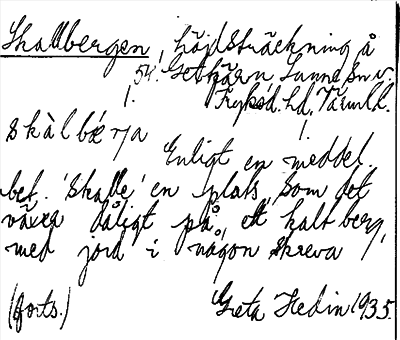 Skallbergen, höjdsträckning å
54. Getkärn Sunne sn v.
1. Fryksd. hd. Värmll.
skàlbæ̀rja 1.
Enligt en meddel.
bet. 'skalle' en plats, som det
växer dåligt på, ett kalt berg,
med jord i någon skreva
(forts.) Greta Hedin 1935.